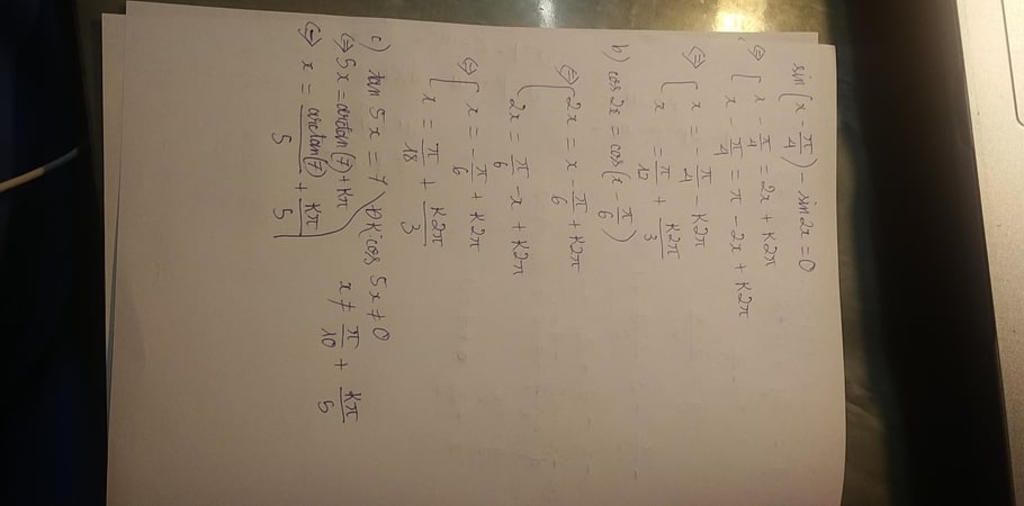 sin(x - π/4) - sin 2x = 0
⇔ [ x - π/4 = 2x + k2π
x - π/4 = π - 2x + k2π
⇔ [ x = -π/4 - k2π
x = 5π/12 + k2π/3
b) cos 2x = cos(x - π/6)
⇔ [ 2x = x - π/6 + k2π
2x = π/6 - x + k2π
⇔ [ x = -π/6 + k2π
x = π/18 + k2π/3
c) tan 5x = 7 \ ĐK: cos 5x ≠ 0
⇔ 5x = arctan(7) + kπ x ≠ π/10 + kπ/5
⇔ x = arctan(7)/5 + kπ/5